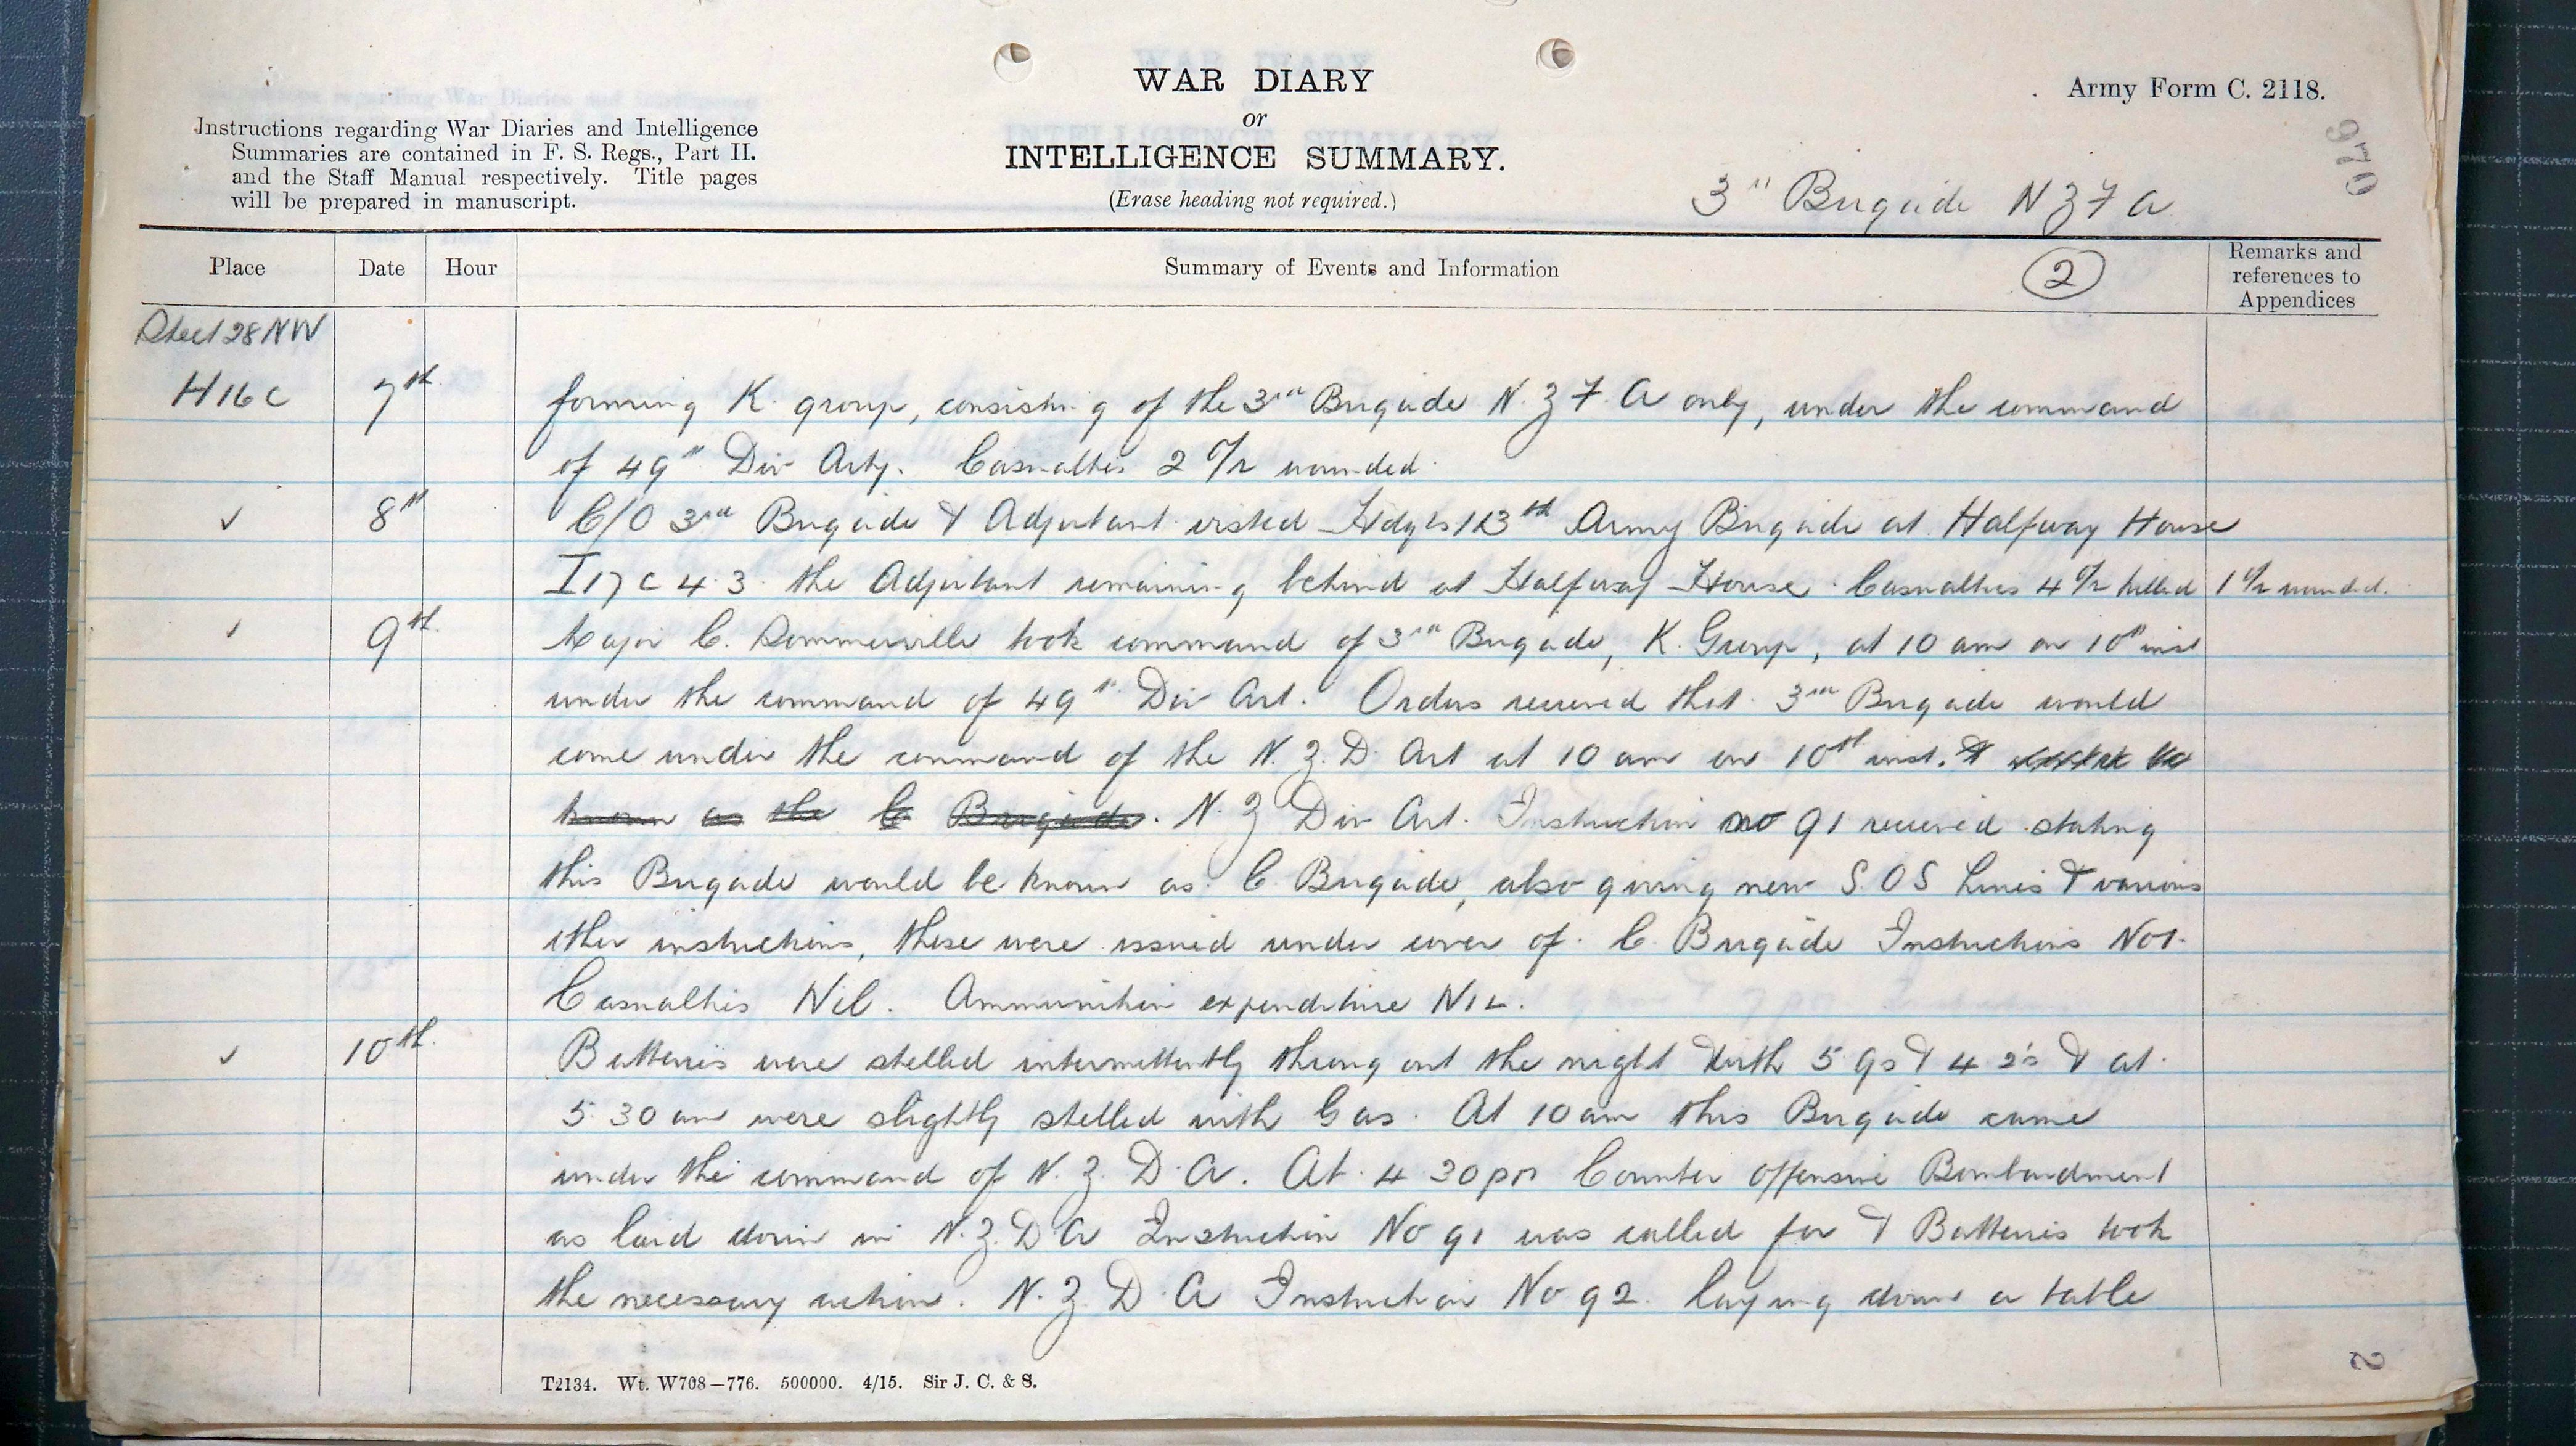 WAR DIARY
or
INTELLIGENCE SUMMARY.
(Erase heading not required.)
Army Form C. 2118.
Instructions regarding War Diaries and Intelligence
Summaries are contained in F. S. Regs., Part II.
and the Staff Manual respectively. Title pages
will be prepared in manuscript.
970
3rd Brigade N Z F A
Place Date Hour Summary of Events and Information Remarks and
references to
Appendices
2
Sheet 28 NW
H 16 c 7th forming K. group, consisting of the 3rd Brigade N. Z F. A only, under the command
of 49th Div Arty. Casualties 2 O/R wounded.
✓ 8th C/O 3rd Brigade & Adjutant visited Hdqrs 113th Army Brigade at Halfway House
I 17 c 4.3. the Adjutant remaining behind at Halfway House. Casualties 4 O/R killed 1 O/R wounded.
✓ 9th Major C. Sommerville took command of 3rd Brigade, K. Group, at 10 am on 10th inst
under the command of 49th Div Art. Orders received that 3rd Brigade would
come under the command of the N. Z. D. Art at 10 am on 10th inst. & would be
known as the C Brigade. N. Z Div Art. Instruction no 91 received stating
this Brigade would be known as C. Brigade, also giving new S. O S Lines & various
other instructions, these were issued under cover of C. Brigade Instructions No 1.
Casualties Nil. Ammunition expenditure NIL.
✓ 10th Batteries were shelled intermittently throughout the night with 5.9s & 4.2's & at
5.30 am were slightly shelled with Gas. At 10 am this Brigade came
under the command of N. Z. D. A. At 4.30 pm Counter Offensive Bombardment
as laid down in N. Z. D. A Instruction No 91 was called for & Batteries took
the necessary action. N. Z. D. A Instruction No 92 laying down a table
T2134. Wt. W708—776. 500000. 4/15. Sir J. C. & S.
2